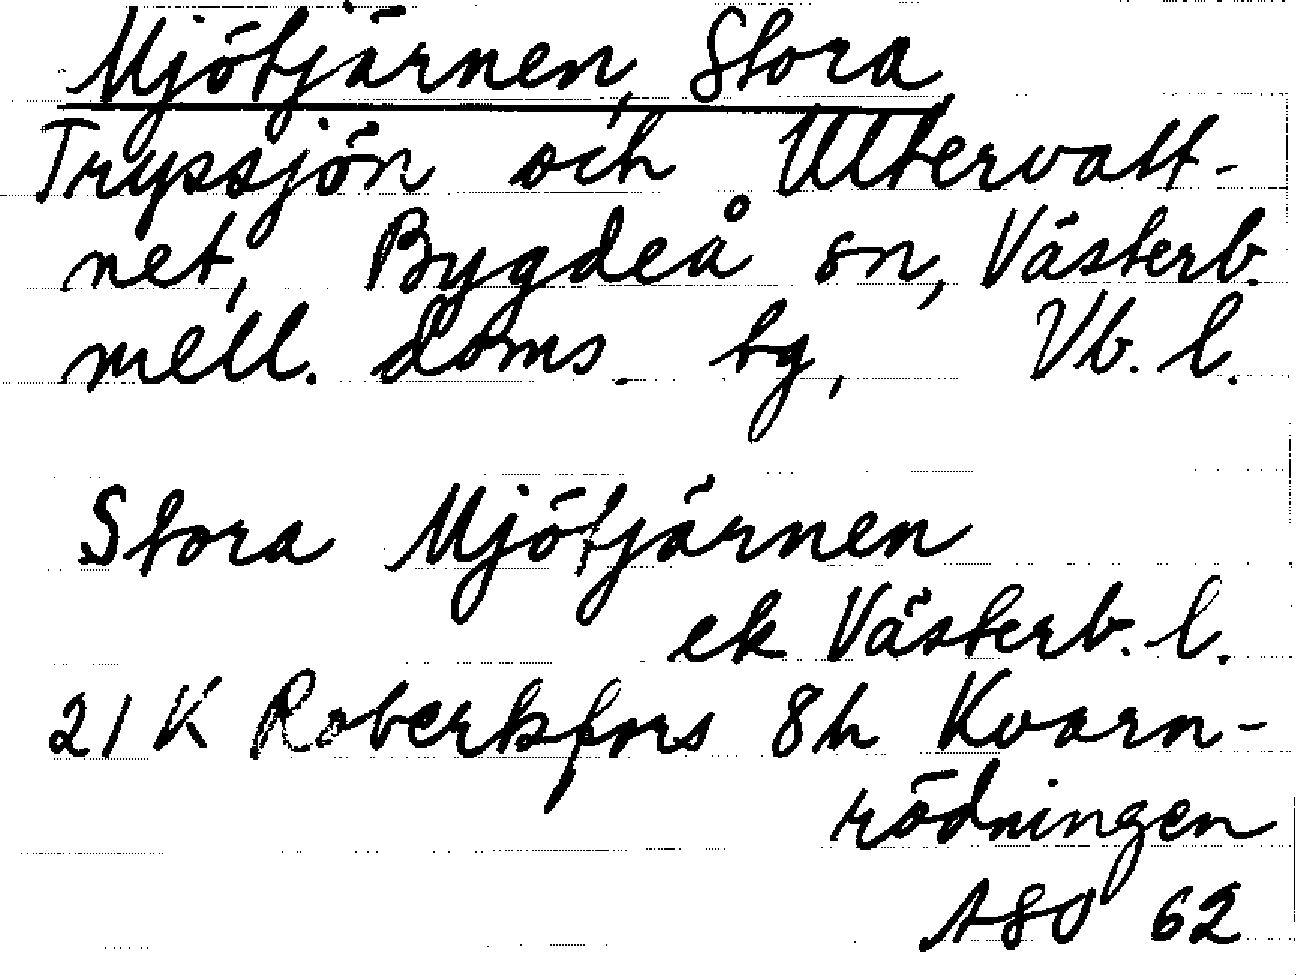 Mjötjärnen, Stora,
Tryssjön och Ultervatt-
net, Bygdeå sn, Västerb.
mell. doms. tg, Vb. l.
Stora Mjötjärnen
ek Västerb. l.
21 K Robertsfors 8h Kvarn-
rödningen
ASO 62